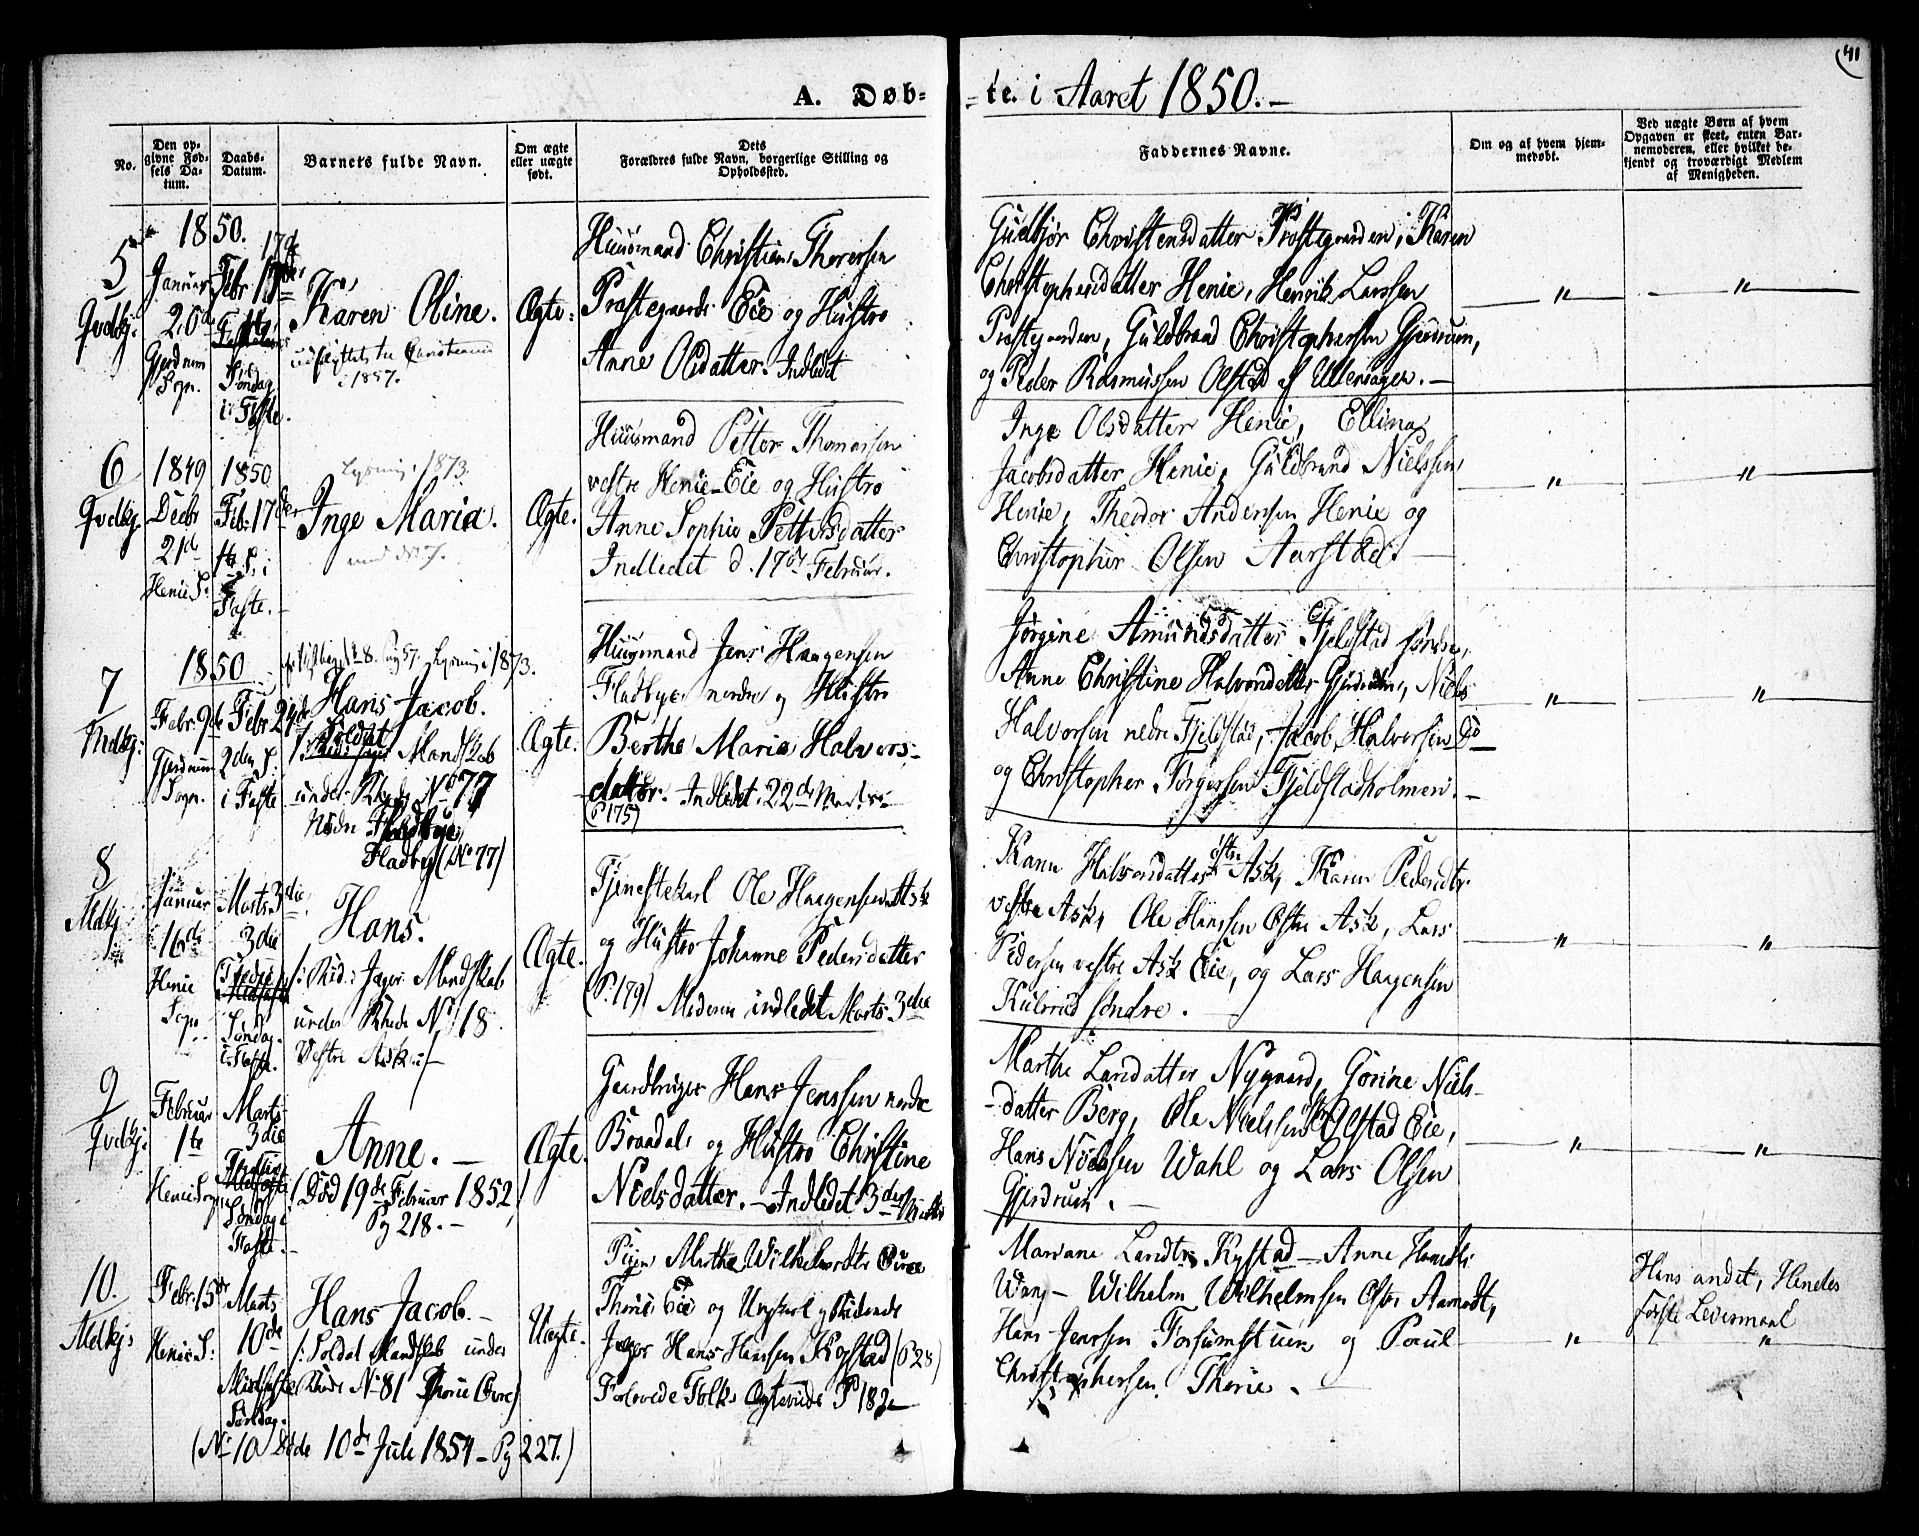 41
A. Døb-
-te. i Aaret 1850.-
No.
Den op-
givne Fød-
sels Da-
tum.
Daabs-
Datum.
Barnets fulde Navn.
Om ægte
eller uægte
født.
Dets
Forældres fulde Navn, borgerlige Stilling og
Opholdssted.
Faddernes Navne.
Om og af hvem hjem-
medøbt.
Ved uægte Børn af hvem
Opgaven er skeet, enten Bar-
nemoderen, eller hvilket be-
kjendt og troværdigt Medlem
af Menigheden.
5
Qvdkj:
1850.
Januar
20de
Gjerdrum
Sogn.
17de
Febr
Søndag
i Faste.
Karen Oline.
i 1857.
Ægte.
Huusmand Christian Thoresen
Præstegaards Eie og Hustro
Anne Olsdatter. Indledet
Gudbjør Christensdatter Præstegaarden, Karen
Christophersdatter Henie, Henrik Larssen
Præstegaarden, Guldbrand Christophersen Gjerdrum,
og Peder Rasmussen Olstad af Ullensager.-
"
"
6
Qvdkj.
1849
Decbr
21de
Henie S:
1850
Feb: 17de
1ste S. i
Faste.
Lysning 1873.
Inge Maria.
Ægte.
Huusmand Petter Thomassen
vestre Henie-Eie og Hustro
Anne Sophie Pettersdatter
Indledet d. 17de Februar.
Inge Olsdatter Henie, Ellina
Jacobsdatter Henie, Guldbrand Nielssen
Henie, Theodor Andersen Henie og
Christopher Olsen Aarstad.
"
"
7
Mdkj:
1850
Febr. 9de
Gjerdrum
Sogn.
Febr. 24de
2den S:
i Faste
Lysning i 1873.
Hans Jacob.
Soldat
Mandskab
under Rhode No 77
Nedre
Fladbye (No 77)
Ægte.
Huusmand Jens Haagensen
Fladbye nordre og Hustro
Berthe Maria Halvors-
datter. Indledet 22de Marts
(P 175)
Jørgine Amundsdatter Fjeldstad søndre,
Anne Christine Halvorsdatter Gjerdrum, Niels
Halvorsen nedre Fjeldstad, Jacob Halvorsen Do
og Christopher Torgersen Fjeldstadholmen.-
"
"
8
Mdkj
Januar
16de
Henie
Sogn
Marts 3die
3die
Søndag
i Faste.
Hans.
/: Rid: Jæger Mandskab
under Rhode No 18
Vestre Ask :/
Ægte.
Tjenestekarl Ole Haagensen Ask
og Hustro Johanne Pedersdatter
(P. 179) Moderen indledet Marts 3die
Karen Halvorsdatter østre Ask, Karen Pedersdtr.
vestre Ask, Ole Hanssen Østre Ask, Lars
Pedersen vestre Ask Eie, og Lars Haagensen
Kulsrud søndre.
"
"
9
Qvdkj:
Februar
1ste
Henie Sogn
Marts
3die
Tredie
Søndag i
Faste.
Anne.-
(Død 19de Februar 1852,
Pg 218.-
Ægte.
Gaardbruger Hans Jenssen nordre
Braadal og Hustro Christine
Nielsdatter.- Indledet 3die Marts
Marthe Larsdatter Nygaard, Gorine Niels-
-datter Berg, Ole Nielssen Olstad Eie,
Hans Nielssen Wahl og Lars Olsen
Gjerdrum.-
"
"
10.
Mdkj:
Febr. 15de
Henie S:
Marts
10de
Midfaste
Søndag.
Hans Jacob.-
/: Soldat Mandskab under
Rhode No 81 Thorie (Øvre)
(No 10 Døde 10de Juli 1854 - Pg 227.)
Uægte.
Pigen Marthe Wilhelmsdtr Øvre
Thorie Eie og Ungkarl ridende
Jæger Hans Hanssen Kogstad (P 28)
Forlovede Folk P 182
Mariane Larsdtr. Kystad - Anne Hansdtr
Wang - Wilhelm Wilhelmsen Østre Aamodt,
Hans Jenssen Forsumstuen og Poul
Christophersen Thorie.-
"
Hans andet, Hendes
første Leiermaal
"